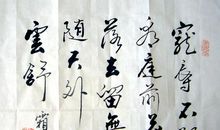 寵辱不
看庭前
落去留無
随天外
雲舒
霜